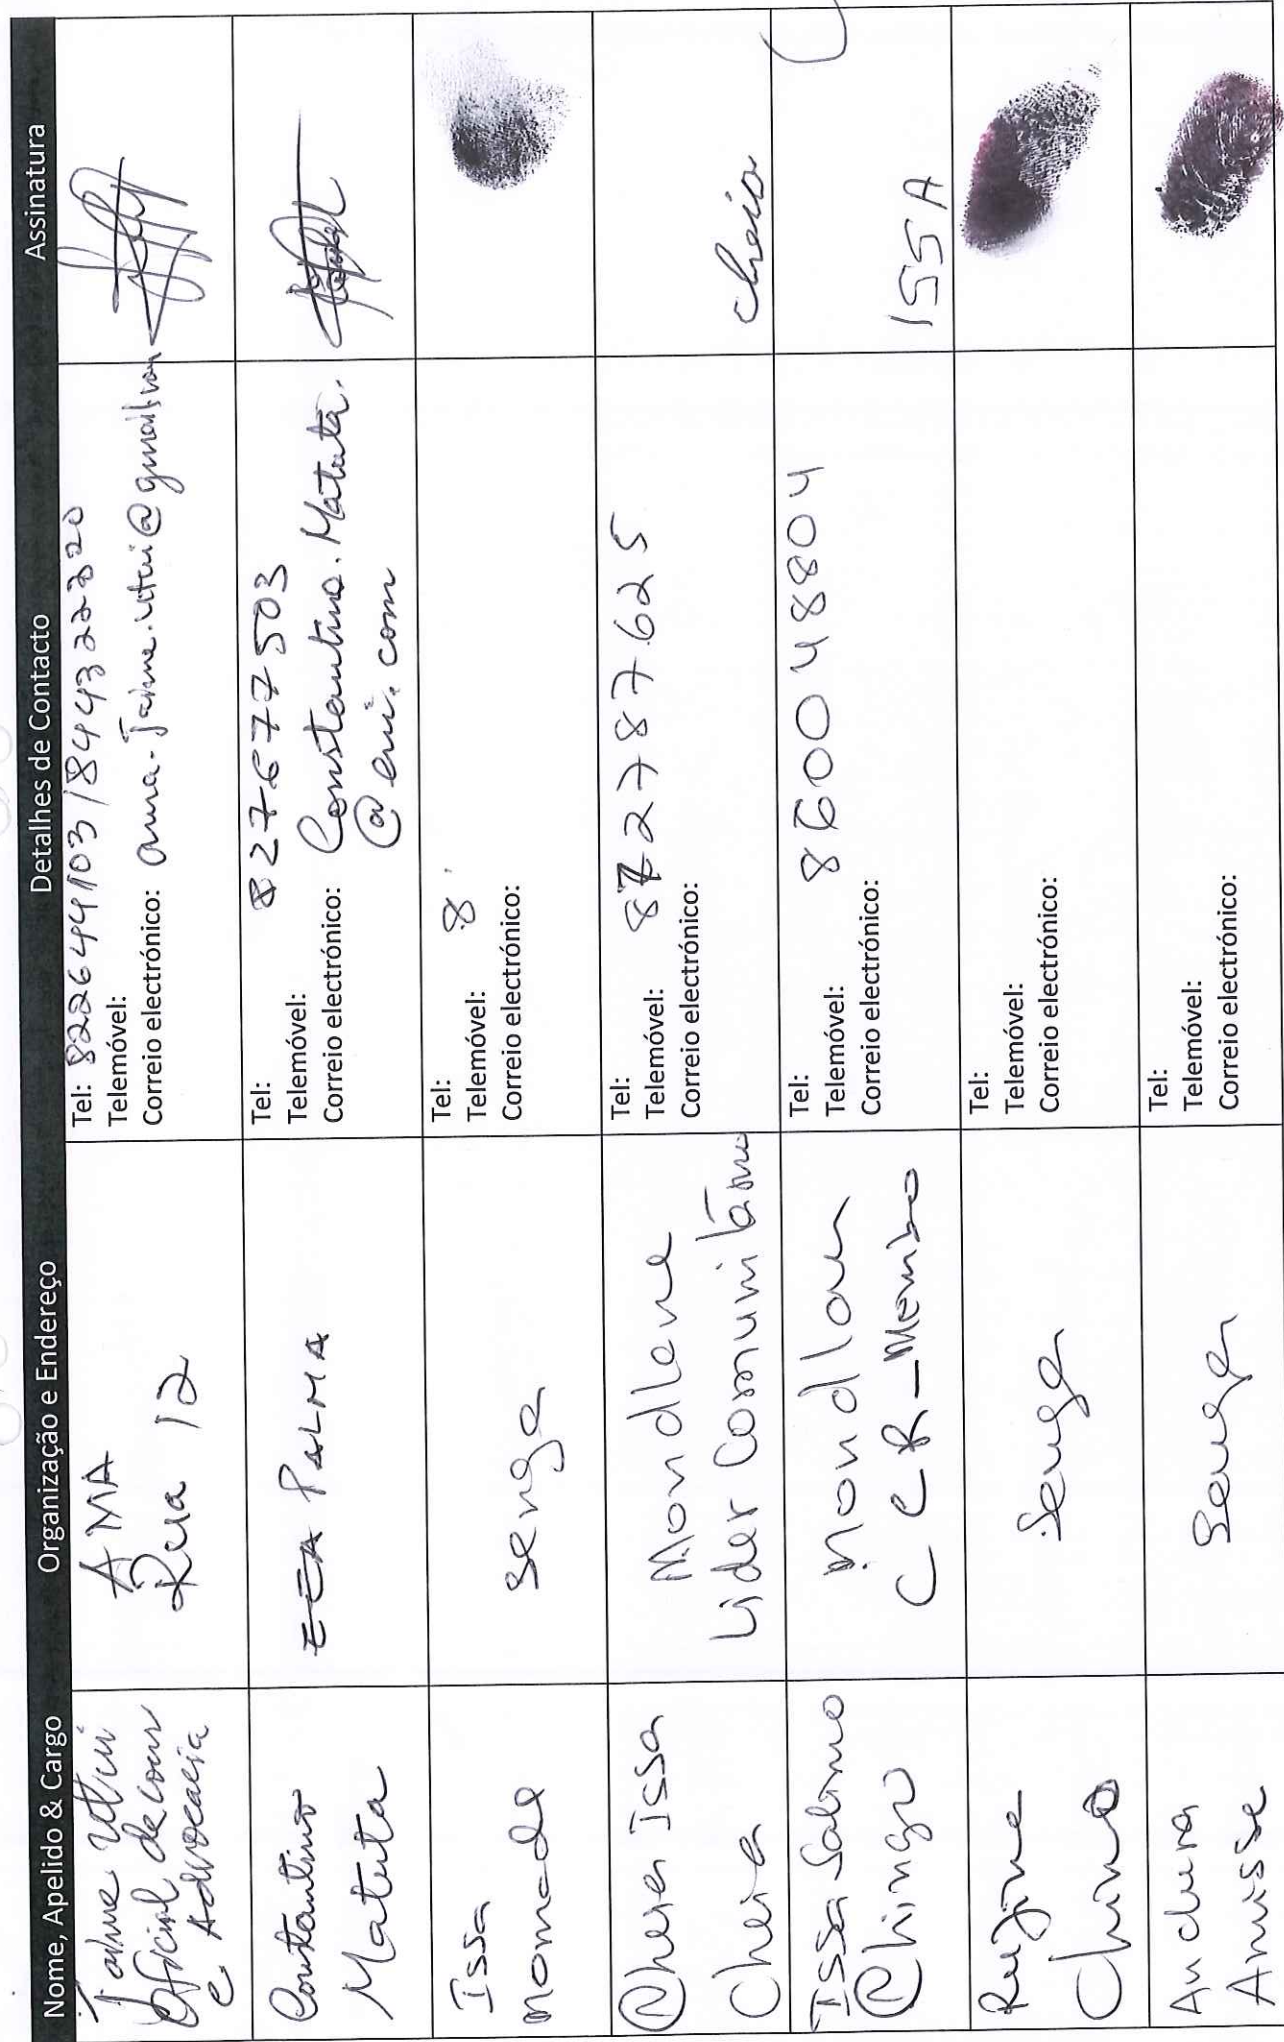 Nome, Apelido & Cargo Organização e Endereço Detalhes de Contacto Assinatura
Jaime
Oficial de com
e Advocacia
AMA
Rua 12
Tel: 822644103 / 844322220
Telemóvel:
Correio electrónico:
Constantino
Matuta
EEA PALMA
Tel: 827677503
Telemóvel:
Correio electrónico: Constantino.Matuta.
@eni.com
Issa
Momade
Senga
Tel:
Telemóvel: 8
Correio electrónico:
Chera Issa
Chera
Mondlane
Lider Comunitário
Tel:
Telemóvel: 872787625
Correio electrónico:
cheia
Issa Salimo
Chingo
Mondlan
CCR-Membro
Tel:
Telemóvel: 860048804
Correio electrónico:
ISSA
Senga
Tel:
Telemóvel:
Correio electrónico:
Anchura
Amisse
Senga
Tel:
Telemóvel:
Correio electrónico: